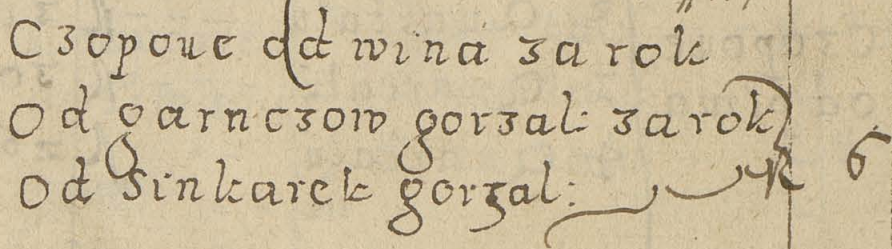 Czopoue od wina za rok
Od garnczow gorzal: za rok
Od Sinkarek gorzal: 6